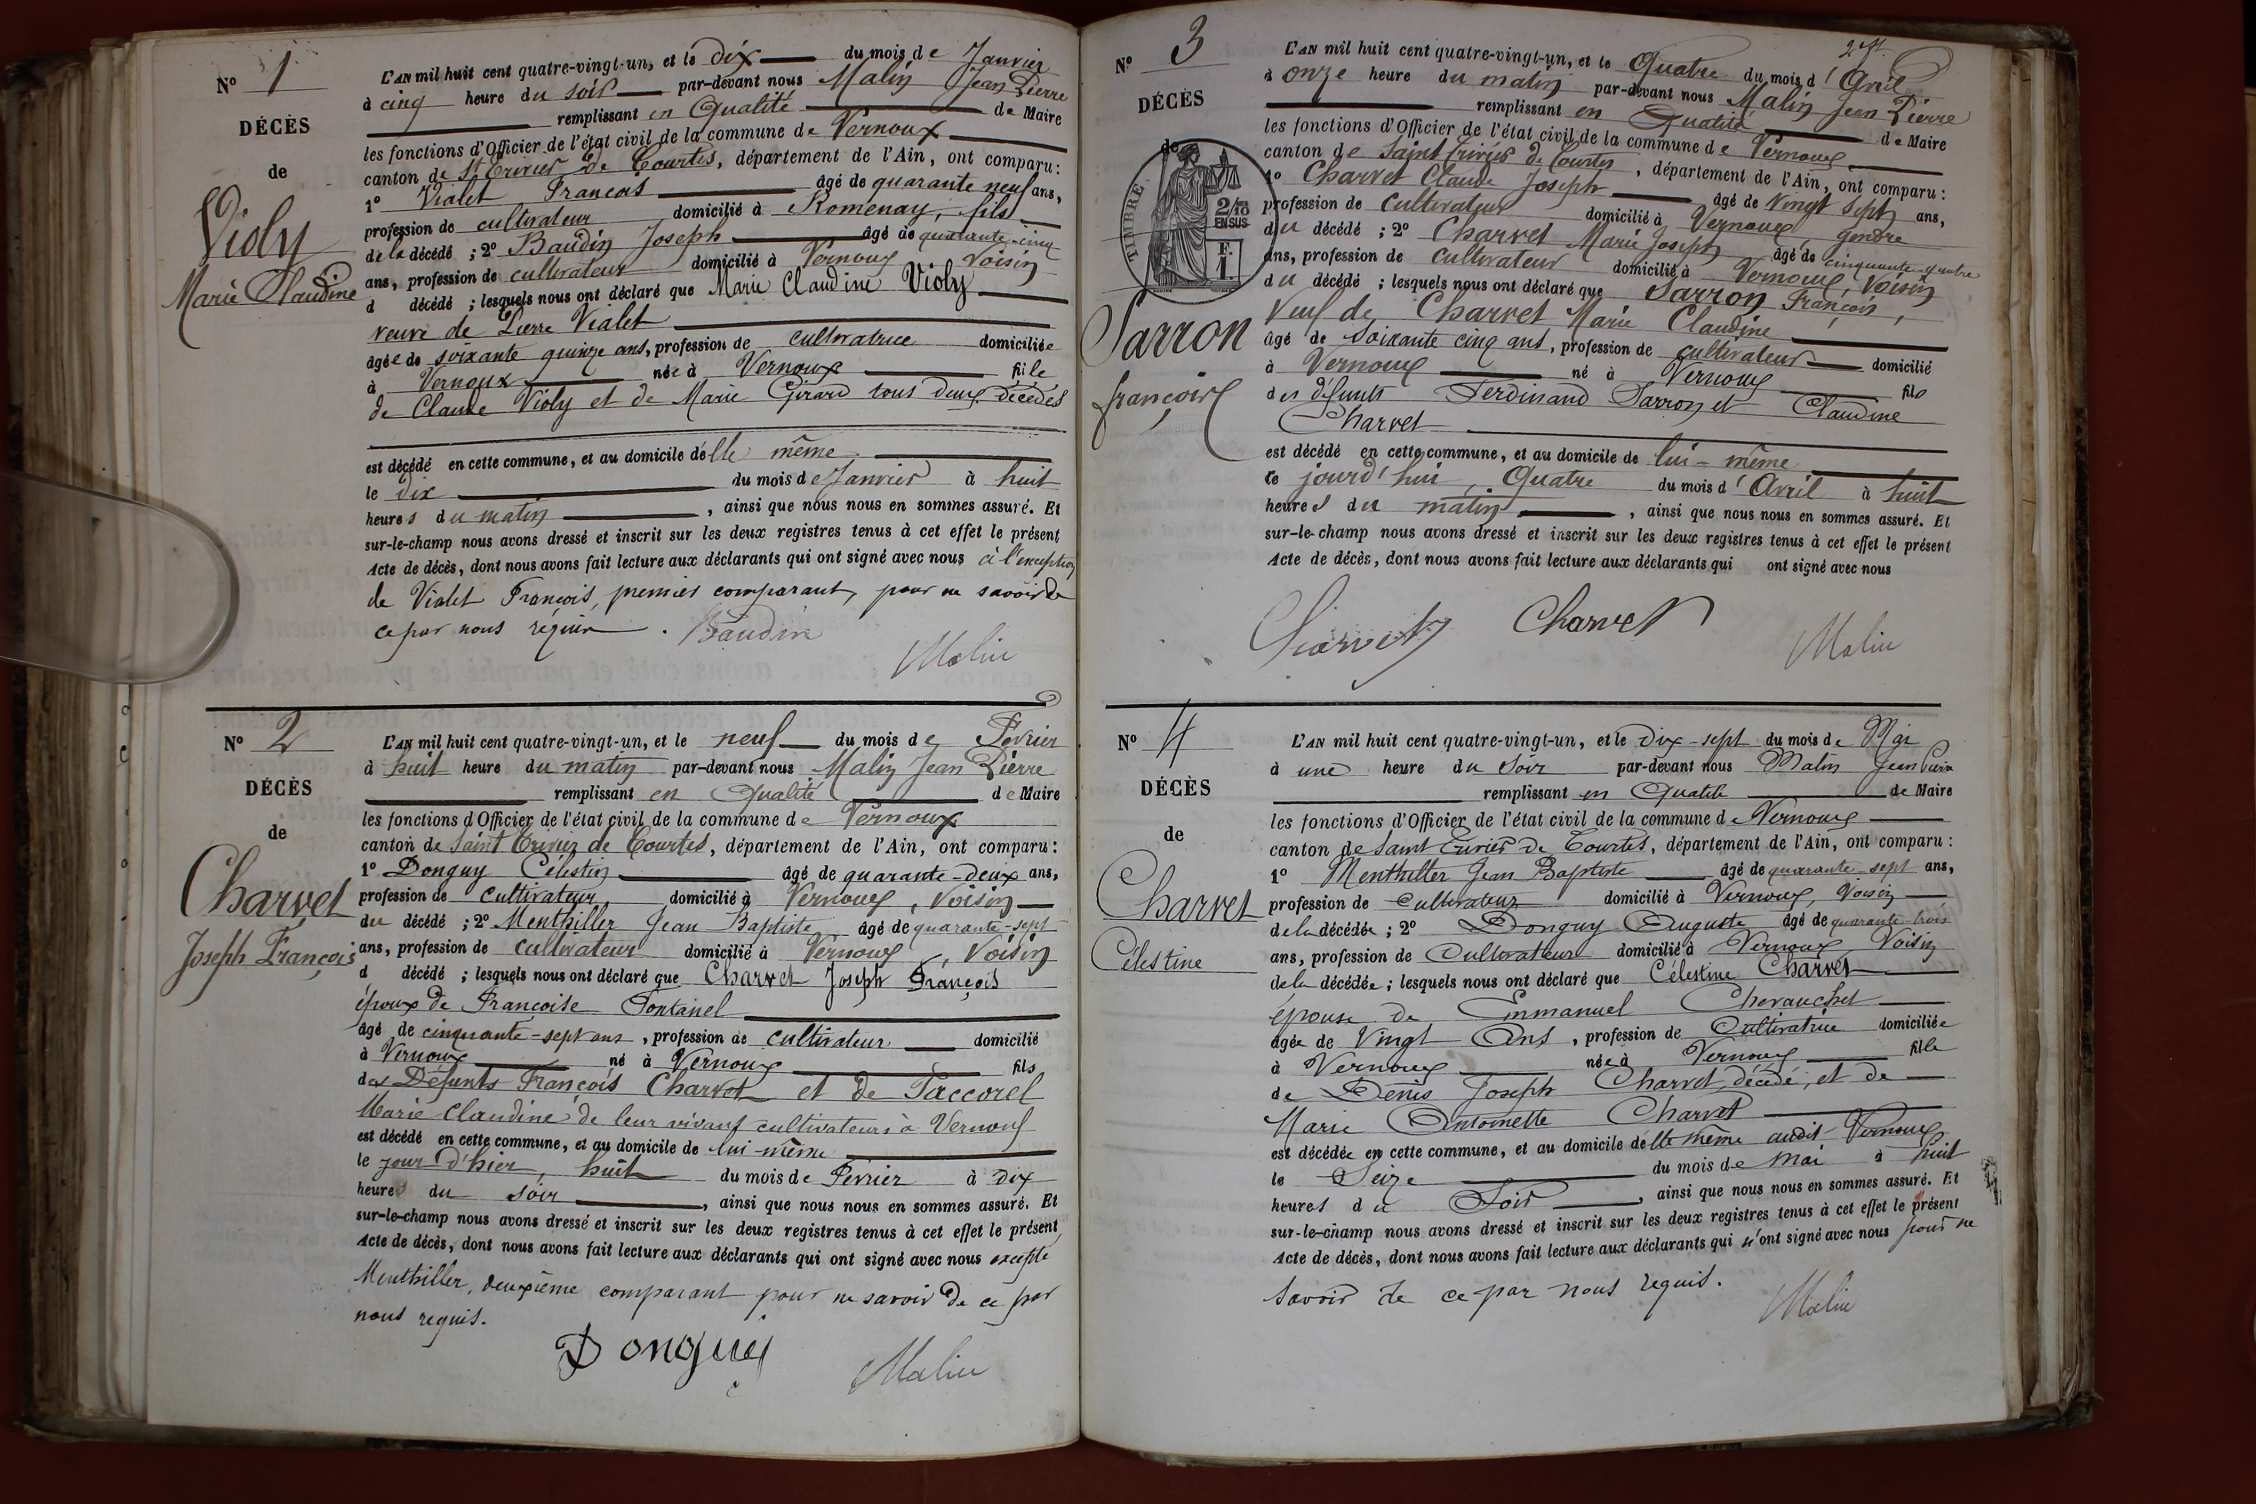 Nº 1
DÉCÈS
de
Violy
Marie Claudine
L'AN mil huit cent quatre-vingt-un, et le dix du mois de Janvier
à cinq heure du soir par-devant nous Malin Jean Pierre
remplissant en Qualité de Maire
les fonctions d'Officier de l'état civil de la commune de Vernoux
canton de St Trivier de Courtes, département de l'Ain, ont comparu :
1º Vialet François âgé de quarante neuf ans,
profession de cultivateur domicilié à Romenay, fils
de la décédé ; 2º Baudin Joseph âgé de quarante-cinq
ans, profession de cultivateur domicilié à Vernoux voisin
d décédé ; lesquels nous ont déclaré que Marie Claudine Violy
veuve de Pierre Vialet
âgée de soixante quinze ans, profession de cultivatrice domiciliée
à Vernoux née à Vernoux fille
de Claude Violy et de Marie Girard tous deux décédés
est décédé en cette commune, et au domicile d'elle même
le dix du mois de Janvier à huit
heures du matin, ainsi que nous nous en sommes assuré. Et
sur-le-champ nous avons dressé et inscrit sur les deux registres tenus à cet effet le présent
Acte de décès, dont nous avons fait lecture aux déclarants qui ont signé avec nous à l'exception
de Vialet François, premier comparant, pour ne savoir de
ce par nous requis.
Baudin
Malin
Nº 2
DÉCÈS
de
Charvet
Joseph François
L'AN mil huit cent quatre-vingt-un, et le neuf du mois de Février
à huit heure du matin par-devant nous Malin Jean Pierre
remplissant en Qualité de Maire
les fonctions d'Officier de l'état civil de la commune de Vernoux
canton de Saint Trivier de Courtes, département de l'Ain, ont comparu :
1º Donguy Célestin âgé de quarante-deux ans,
profession de cultivateur domicilié à Vernoux, Voisin
du décédé ; 2º Menthiller Jean Baptiste âgé de quarante-sept
ans, profession de cultivateur domicilié à Vernoux, Voisin
d décédé ; lesquels nous ont déclaré que Charvet Joseph François
époux de Françoise Fontanel
âgé de cinquante-sept ans, profession de cultivateur domicilié
à Vernoux né à Vernoux fils
des Défunts François Charvet et de Paccorel
Marie Claudine de leur vivant cultivateurs à Vernoux
est décédé en cette commune, et au domicile de lui-même
le jour d'hier, huit du mois de Février à dix
heures du soir, ainsi que nous nous en sommes assuré. Et
sur-le-champ nous avons dressé et inscrit sur les deux registres tenus à cet effet le présent
Acte de décès, dont nous avons fait lecture aux déclarants qui ont signé avec nous excepté
Menthiller, deuxième comparant pour ne savoir de ce par
nous requis.
Donguy
Malin
Nº 3
DÉCÈS
de
TIMBRE
2/10 EN SUS
F. 1.
Sarron
françois
L'AN mil huit cent quatre-vingt-un, et le Quatre du mois d'Avril
à onze heure du matin par-devant nous Malin Jean Pierre
remplissant en Qualité de Maire
les fonctions d'Officier de l'état civil de la commune de Vernoux
canton de Saint Trivier de Courtes, département de l'Ain, ont comparu :
1º Charvet Claude Joseph âgé de Vingt Sept ans,
profession de cultivateur domicilié à Vernoux, gendre
du décédé ; 2º Charvet Marie Joseph âgé de cinquante-quatre
ans, profession de cultivateur domicilié à Vernoux, Voisin
du décédé ; lesquels nous ont déclaré que Sarron François,
Veuf de Charvet Marie Claudine
âgé de Soixante cinq ans, profession de cultivateur domicilié
à Vernoux né à Vernoux fils
des défunts Ferdinand Sarron et Claudine
Charvet
est décédé en cette commune, et au domicile de lui-même
ce jourd'hui, Quatre du mois d'Avril à huit
heures du matin, ainsi que nous nous en sommes assuré. Et
sur-le-champ nous avons dressé et inscrit sur les deux registres tenus à cet effet le présent
Acte de décès, dont nous avons fait lecture aux déclarants qui ont signé avec nous
Charvet Charvet
Malin
Nº 4
DÉCÈS
de
Charvet
Célestine
L'AN mil huit cent quatre-vingt-un, et le dix-sept du mois de Mai
à une heure du Soir par-devant nous Malin Jean Pierre
remplissant en Qualité de Maire
les fonctions d'Officier de l'état civil de la commune de Vernoux
canton de Saint Trivier de Courtes, département de l'Ain, ont comparu :
1º Menthiller Jean Baptiste âgé de quarante-sept ans,
profession de Cultivateur domicilié à Vernoux, Voisin
de la décédée ; 2º Donguy Auguste âgé de quarante-trois
ans, profession de Cultivateur domicilié à Vernoux, Voisin
de la décédée ; lesquels nous ont déclaré que Célestine Charvet
épouse de Emmanuel Chevauchet
âgée de Vingt Ans, profession de Cultivatrice domiciliée
à Vernoux née à Vernoux fille
de Denis Joseph Charvet, décédé, et de
Marie Antoinette Charvet
est décédée en cette commune, et au domicile d'elle même audit Vernoux
le Seize du mois de Mai à huit
heures du Soir, ainsi que nous nous en sommes assuré. Et
sur-le-champ nous avons dressé et inscrit sur les deux registres tenus à cet effet le présent
Acte de décès, dont nous avons fait lecture aux déclarants qui n'ont signé avec nous pour ne
savoir de ce par nous requis.
Malin